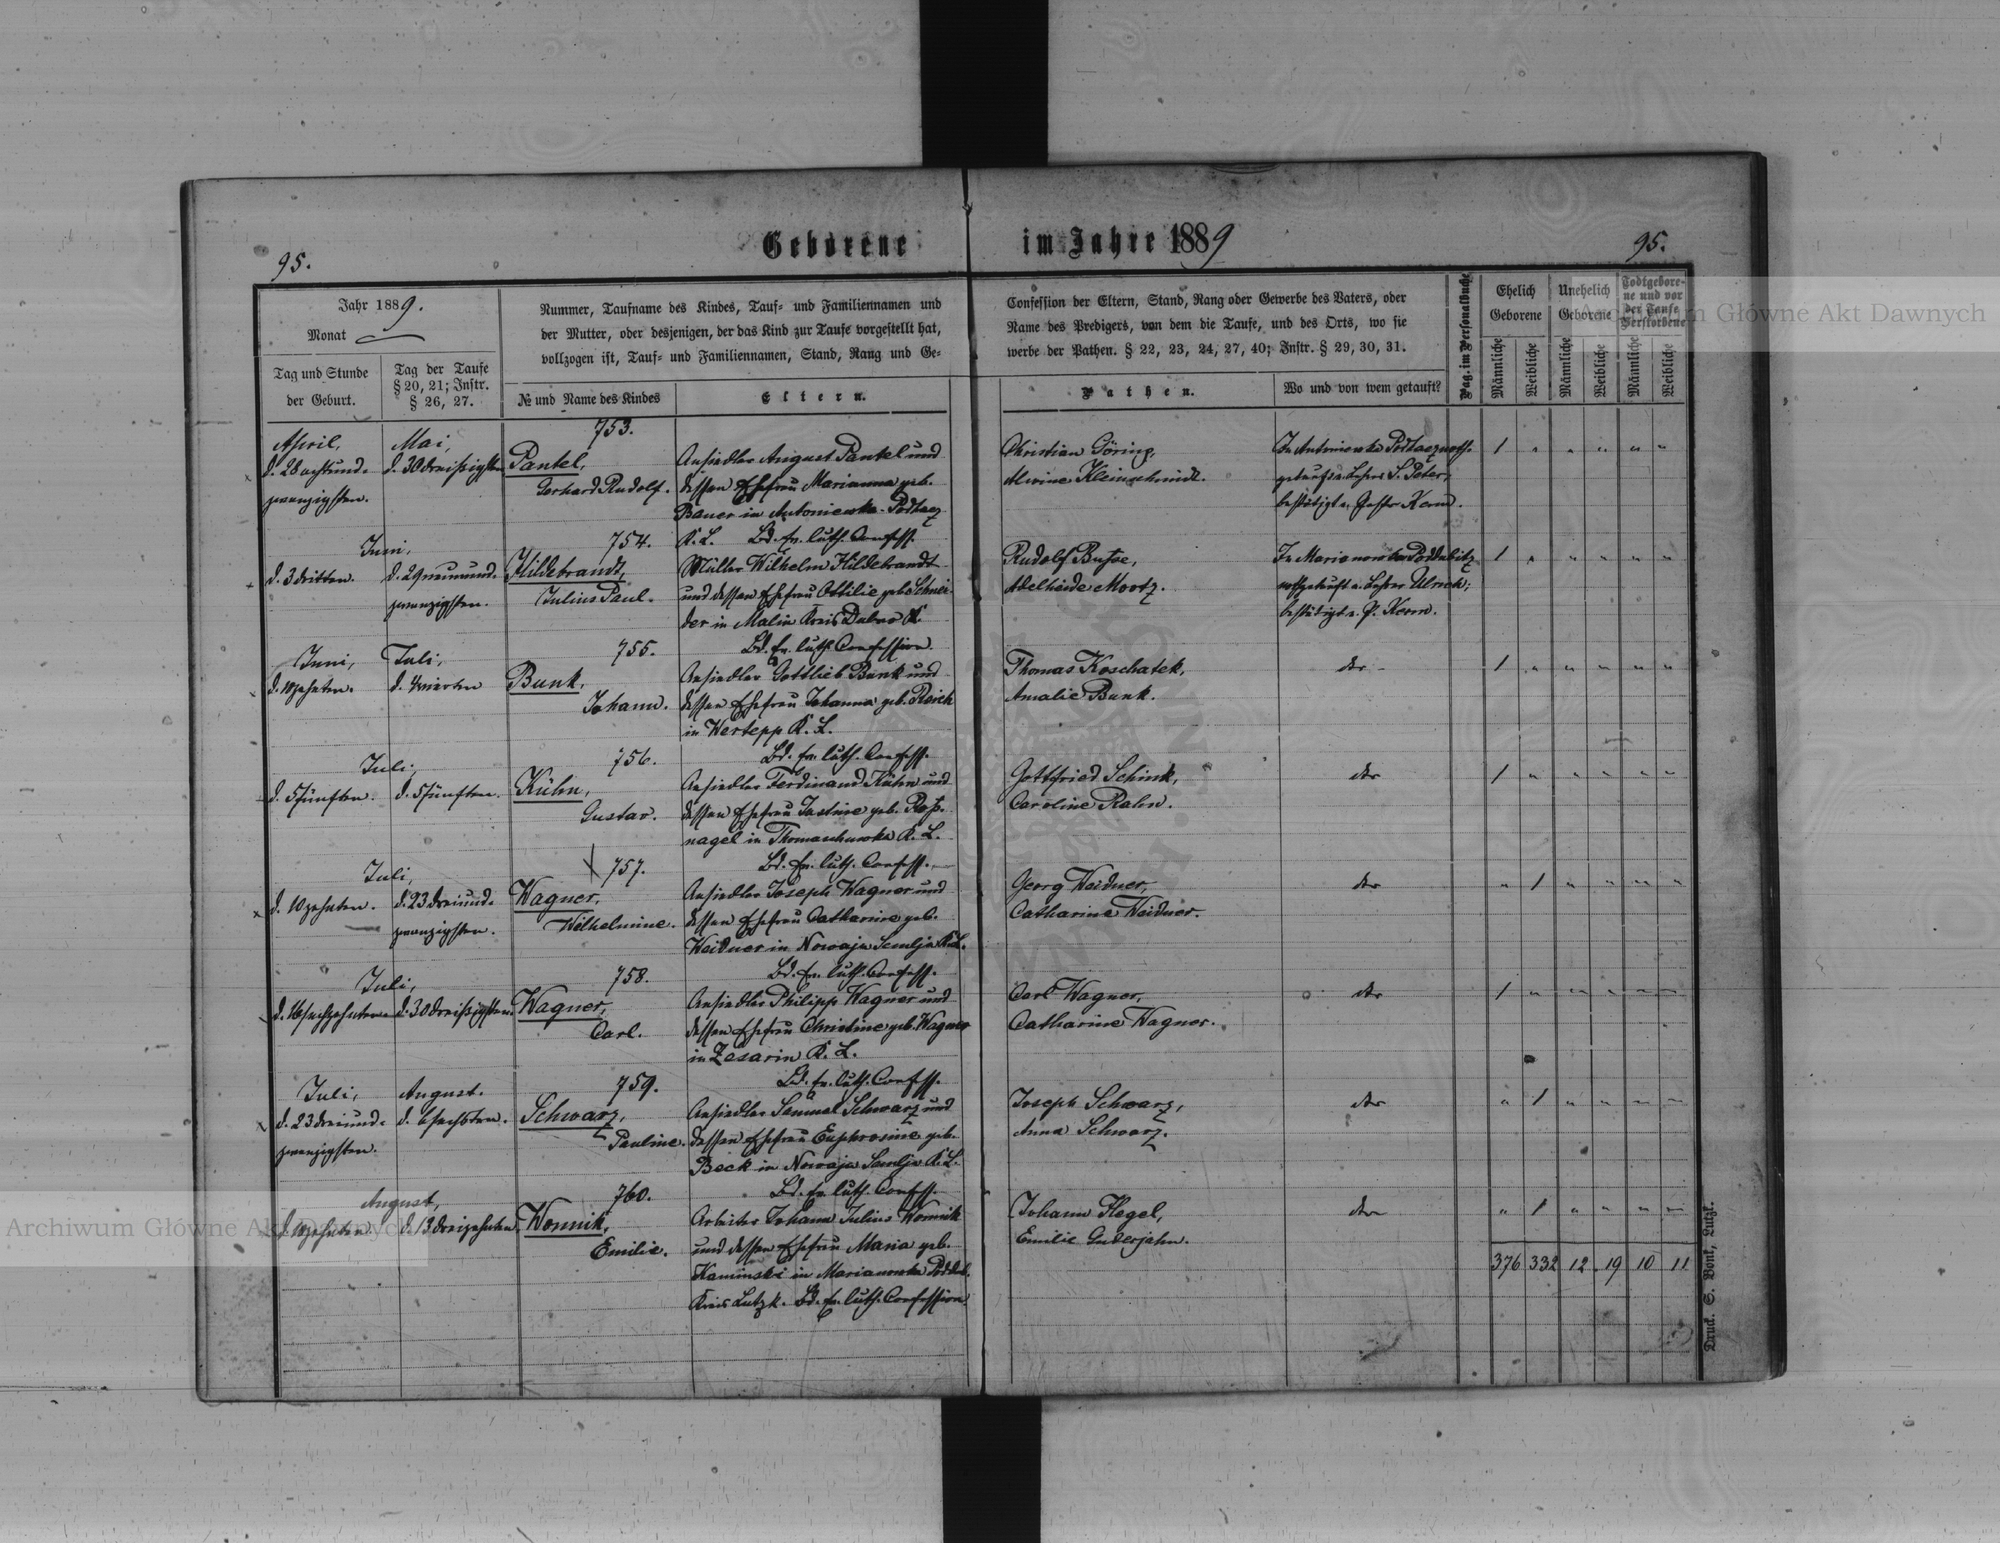 95.
Geborene im Jahre 1889
95.
Jahr 1889.
Monat
Tag und Stunde
der Geburt.
Tag der Taufe
§ 20, 21; Instr.
§ 26, 27.
Nummer, Taufname des Kindes, Tauf- und Familiennamen und
der Mutter, oder desjenigen, der das Kind zur Taufe vorgestellt hat,
vollzogen ist, Tauf- und Familiennamen, Stand, Rang und Ge-
№ und Name des Kindes
Eltern.
Confession der Eltern, Stand, Rang oder Gewerbe des Vaters, oder
Name des Predigers, von dem die Taufe, und des Orts, wo sie
werbe der Pathen. § 22, 23, 24, 27, 40; Instr. § 29, 30, 31.
Pathen.
Wo und von wem getauft?
Pag. im Personalbuche
Ehelich
Geborene
Unehelich
Geborene
Todtgebore-
ne und vor
der Taufe
Verstorbene
Männliche
Weibliche
Männliche
Weibliche
Männliche
Weibliche
April,
d. 28 achtund-
zwanzigsten.
Mai,
d. 30 dreißigsten
753.
Pantel,
Gerhard Rudolf.
Ansiedler August Pantel und
dessen Ehefrau Marianna geb.
Bauer in Antoniewka-Podhaez
K. L. Bd. ev. luth. Confess.
Christian Göring,
Alwine Kleinschmidt.
In Antoniewka
getauft v. Lehrer S. Peter,
bestätigt v. Pastor Kern.
1 " " " " "
Juni,
d. 3 dritten.
d. 29 neunund-
zwanzigsten.
754.
Hildebrandt,
Julius Paul.
Müller Wilhelm Hildebrandt
und dessen Ehefrau Ottilie geb. Schnei-
der in Malin Kreis Dubno
Bd. ev. luth. Confession.
Rudolf Buße,
Adelheide Mootz.
In Marianowka Poddubitz
nothgetauft v. Lehrer Ulrich;
bestätigt v. P. Kern.
1 " " " " "
Juni,
d. 10 zehnten.
Juli,
d. 4 vierten
755.
Bunk,
Johann.
Ansiedler Gottlieb Bunk und
dessen Ehefrau Johanna geb. Reich
in Wertepp K. L.
Bd. ev. luth. Confess.
Thomas Koschatek,
Amalie Bunk.
der
1 " " " " "
Juli,
d. 5 fünften.
d. 5 fünften.
756.
Kühn,
Gustav.
Ansiedler Ferdinand Kühn und
dessen Ehefrau Justine geb. Roß-
nagel in Thomaschewka K. L.
Bd. ev. luth. Confess.
Gottfried Schink,
Caroline Rahn.
der
1 " " " " "
Juli,
d. 10 zehnten.
d. 23 dreiund-
zwanzigsten.
757.
Wagner,
Wilhelmine.
Ansiedler Joseph Wagner und
dessen Ehefrau Catharine geb.
Weidner in Nowaja Semlja K. L.
Bd. ev. luth. Confess.
Georg Weidner,
Catharine Weidner.
der
" 1 " " " "
Juli,
d. 16 sechzehnten.
d. 30 dreißigsten.
758.
Wagner,
Carl.
Ansiedler Philipp Wagner und
dessen Ehefrau Christine geb. Wagner
in Zesarin K. L.
Bd. ev. luth. Confess.
Carl Wagner,
Catharine Wagner.
der
1 " " " " "
Juli,
d. 23 dreiund-
zwanzigsten.
August.
d. 6 sechsten.
759.
Schwarz,
Pauline.
Ansiedler Samuel Schwarz und
dessen Ehefrau Euphrosine geb.
Beck in Nowaja Semlja K. L.
Bd. ev. luth. Confess.
Joseph Schwarz,
Anna Schwarz.
der
" 1 " " " "
August,
d. 10 zehnten
d. 13 dreizehnten
760.
Wonnik,
Emilie.
Arbeiter Johann Julius Wonnik
und dessen Ehefrau Maria geb.
Kaminski in Marianowka Poddub.
Kreis Lutzk. Bd. ev. luth. Confession
Johann Hegel,
Emilie Guderjahn.
der
" 1 " " " "
376 332 12 19 10 11
Druck. S. Bonk, Lutzk.
Archiwum Główne Akt Dawnych
Archiwum Główne Akt Dawnych